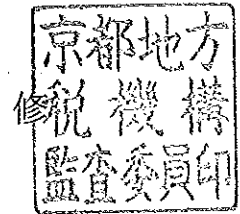 京都地方
修税機構
監査委員印